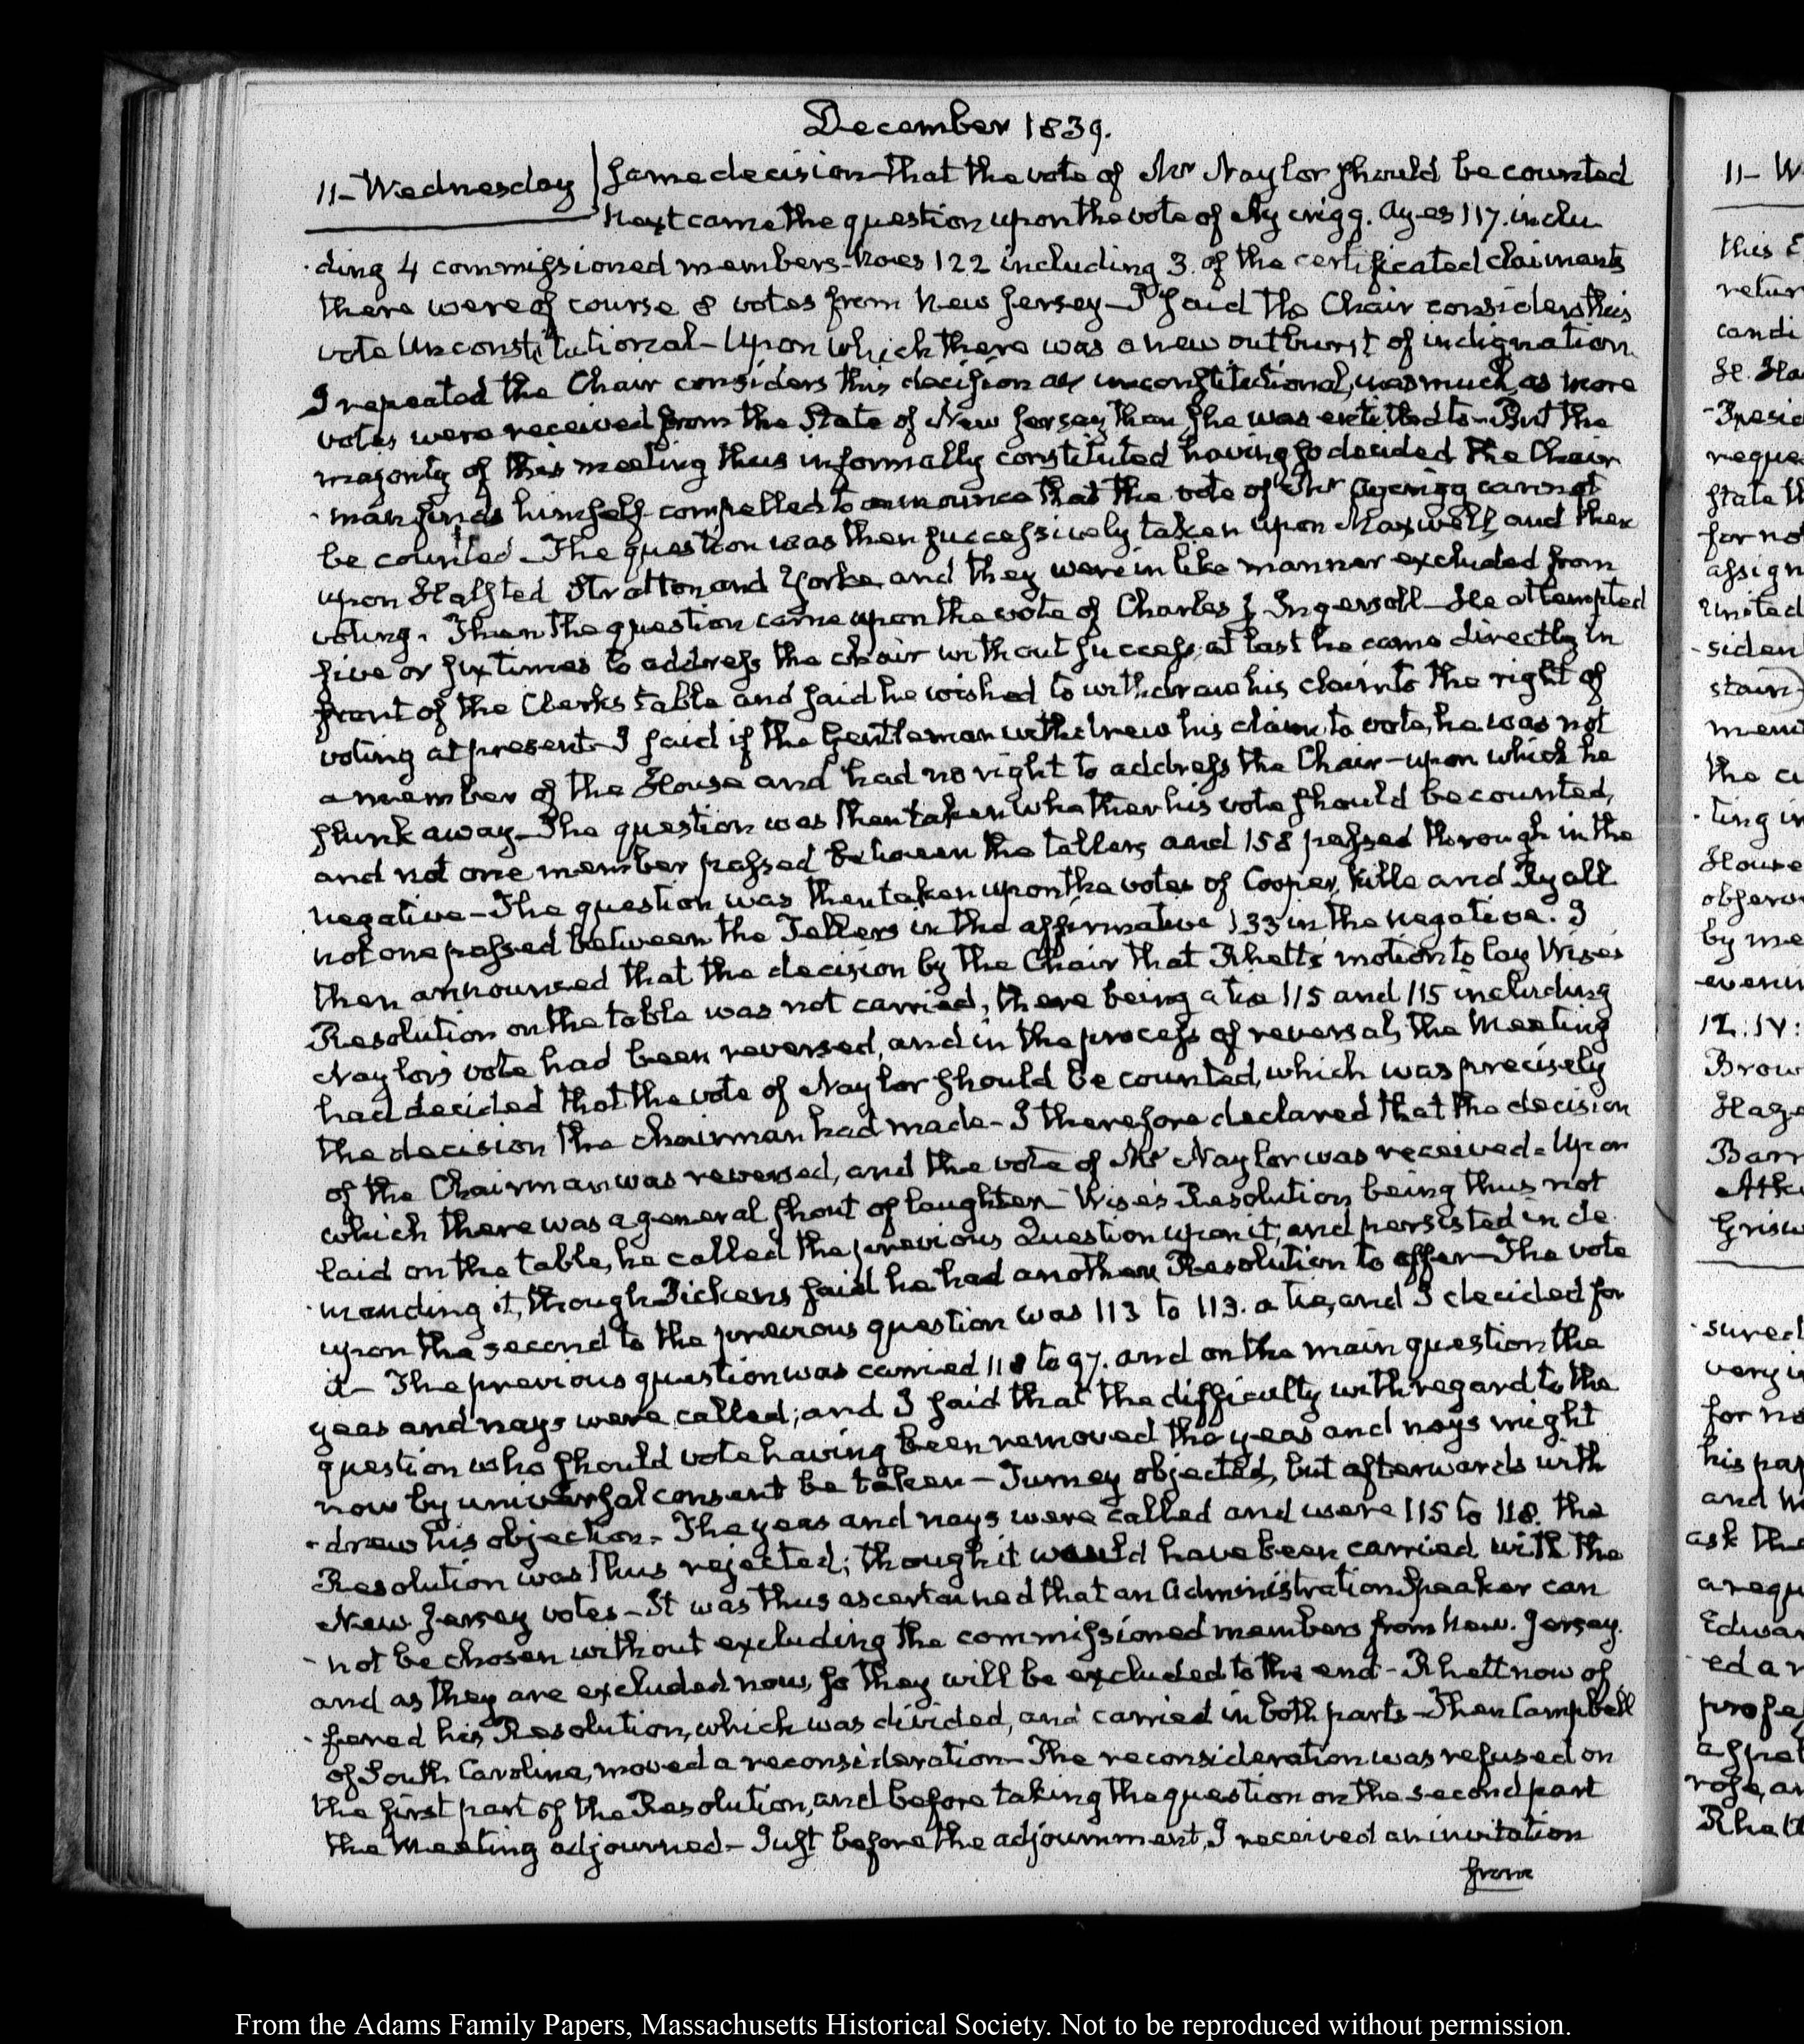 December 1839.
11- Wednesday
same decision that the vote of Mr Naylor should be counted
Next came the question upon the vote of Aycrigg. Ayes 117. inclu
ding 4 commissioned members - Noes 122 including 3. of the certificated claimants
there were of course 8 votes from New Jersey - I said the Chair considers this
vote Unconstitutional - Upon which there was a new outburst of indignation.
I repeated the Chair considers this decision as unconstitutional, inasmuch, as more
votes were received from the State of New Jersey than she was entitled to - But the
majority of this meeting thus informally constituted having so decided the Chair
-man finds himself compelled to announce that the vote of Mr Aycrigg cannot
be counted - The question was then successively taken upon Maxwell, and then
upon Halsted Stratton and Yorke and they were in like manner excluded from
voting. Then the question came upon the vote of Charles J. Ingersoll - He attempted
five or six times to address the chair without success; at last he came directly in
front of the Clerks table and said he wished to withdraw his claim to the right of
voting at present - I said if the Gentleman withdrew his claim to vote, he was not
a member of the House and had no right to address the Chair - upon which he
slunk away - The question was then taken whether his vote should be counted,
and not one member passed between the tellers and 158 passed through in the
negative - The question was then taken upon the votes of Cooper, Kille and Ryall
not one passed between the Tellers in the affirmative 133 in the negative. I
then announced that the decision by the Chair that Rhett's motion to lay Wise's
Resolution on the table was not carried, there being a tie 115 and 115 including
Naylor's vote had been reversed, and in the process of reversal, the Meeting
had decided that the vote of Naylor should be counted, which was precisely
the decision the chairman had made - I therefore declared that the decision
of the Chairman was reversed, and the vote of Mr Naylor was received - Upon
which there was a general shout of laughter - Wise's Resolution being thus not
laid on the table, he called the previous Question upon it, and persisted in de
manding it, though Pickens said he had another Resolution to offer - The vote
upon the second to the previous question was 113 to 113. a tie, and I decided for
it - The previous question was carried 118 to 97. and on the main question the
yeas and nays were called; and I said that the difficulty with regard to the
question who should vote having been removed the yeas and nays might
now by universal consent be taken - Turney objected, but afterwards with
-drew his objection - The yeas and nays were called and were 115 to 118. the
Resolution was thus rejected; though it would have been carried with the
New Jersey votes - It was thus ascertained that an Administration Speaker can
-not be chosen without excluding the commissioned members from New. Jersey.
and as they are excluded now, so they will be excluded to the end - Rhett now of
-fered his Resolution, which was divided, and carried in both parts - Then Campbell
of South Carolina, moved a reconsideration - The reconsideration was refused on
the first part of the Resolution, and before taking the question on the second part
the Meeting adjourned - Just before the adjournment, I received an invitation
from
11- W
this
retur
candi
H. Ha
Presid
reque
State th
for not
assign
United
-siden
stain
mem
the cu
-ting in
House
observ
by me
evenin
12. IV:
Brow
Haze
Barn
Athe
Grisw
-sured
very
for no
his par
and
ask the
a requ
Edwar
ed a
profes
a
rose, an
Rhett
From the Adams Family Papers, Massachusetts Historical Society. Not to be reproduced without permission.